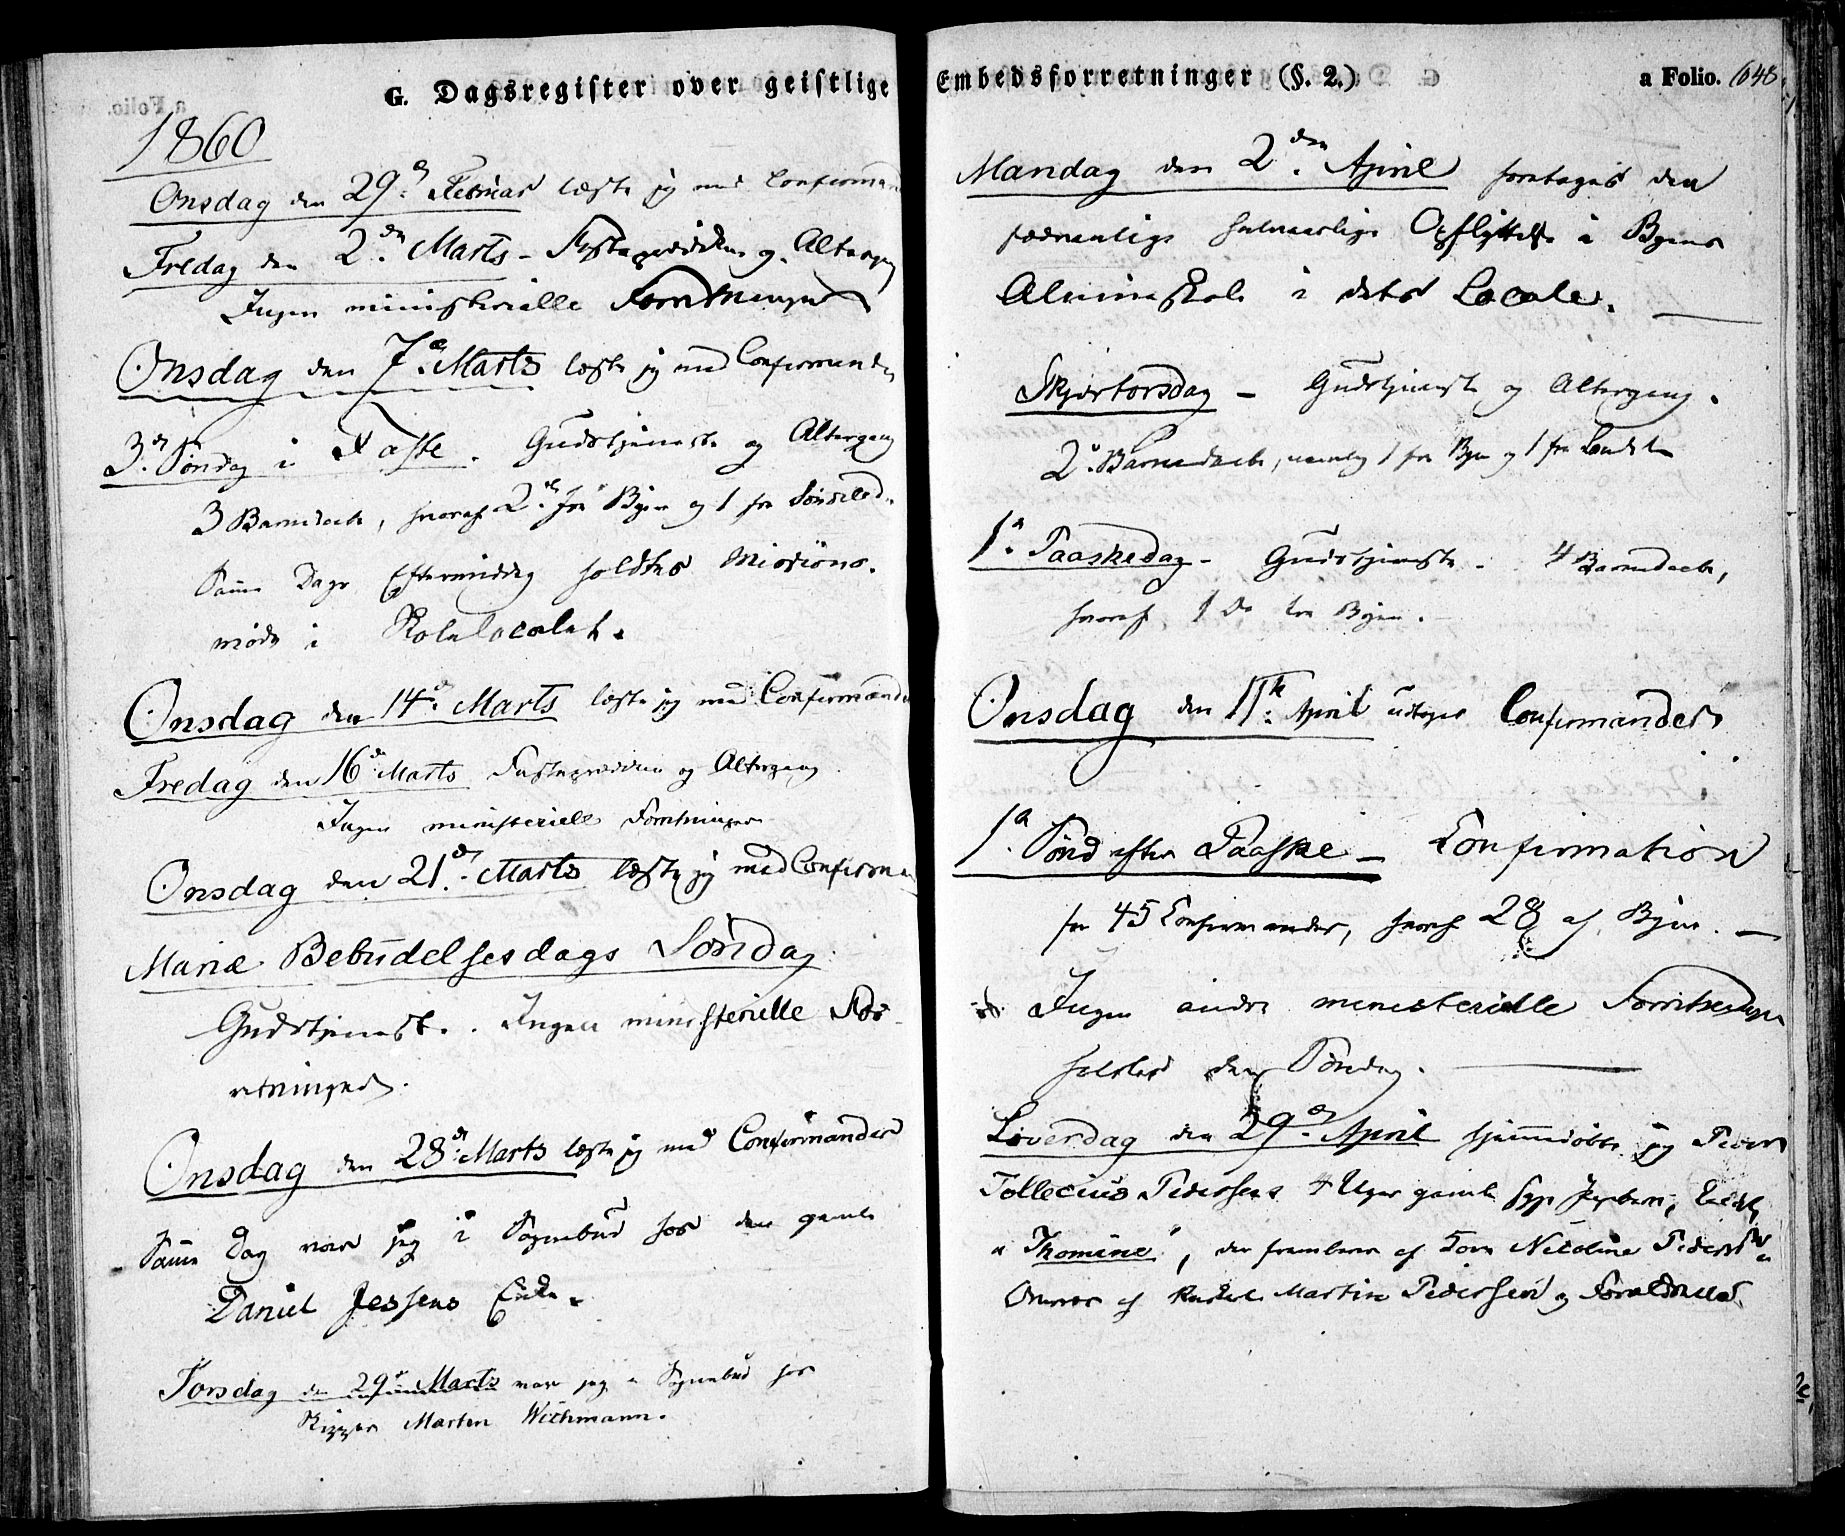 G. Dagsregister over geistlige Embedsforretninger (§. 2.) a Folio. 648
1860
Onsdag den 29de Februar læste jeg med Confirmand
Fredag den 2den Marts - Fasteprædiken og Altergang
Ingen ministerielle Forretninger
Onsdag den 7de Marts læste jeg med Confirmander
3die Søndag i Faste. Gudstjeneste og Altergang
3 Barnedaab, hvoraf 2de fra Byen og 1 fra Søndeled.
Samme Dags Eftermiddag holdtes Missions-
møde i Skolelocalet.
Onsdag den 14de Marts læste jeg med Confirmander
Fredag den 16de Marts Fasteprædiken og Altergang
Ingen ministerielle Forretninger
Onsdag den 21de Marts læste jeg med Confirman
Mariæ Bebudelsesdags Søndag.
Gudstjeneste. Ingen ministerielle For-
retninger.
Onsdag den 28de Marts læste jeg med Confirmander
Samme Dag var jeg i Sognebud hos den gamle
Daniel Jessens Enke.
Torsdag den 29de Marts var jeg i Sognebud hos
Skipper Marten Wichmann.
Mandag den 2den April foretoges den
sædvanlige halvaarlige Opflyttelse i Byens
Almueskole i dets Locale.
Skjærtorsdag - Gudstjeneste og Altergang.
2de Barnedaab, nemlig 1 fra Byen og 1 fra Landet
1ste Paaskedag - Gudstjeneste. 4 Barnedaab,
hvoraf 1 fra Byen.
Onsdag den 11te April udtoges Confirmander
1ste Sønd efter Paaske - Confirmation
for 45 Confirmander, hvoraf 28 af Byen.
Ingen andre ministerielle Forretninger
holdtes den Søndag.
Løverdag den 29de April hjemmedøbte jeg Peder
Tollecius Pedersens 4 Uger gamle Barn, kaldt
"Thomine", der frembares af Nicoline Pedersen
af Martin Pedersen og Forældrene.